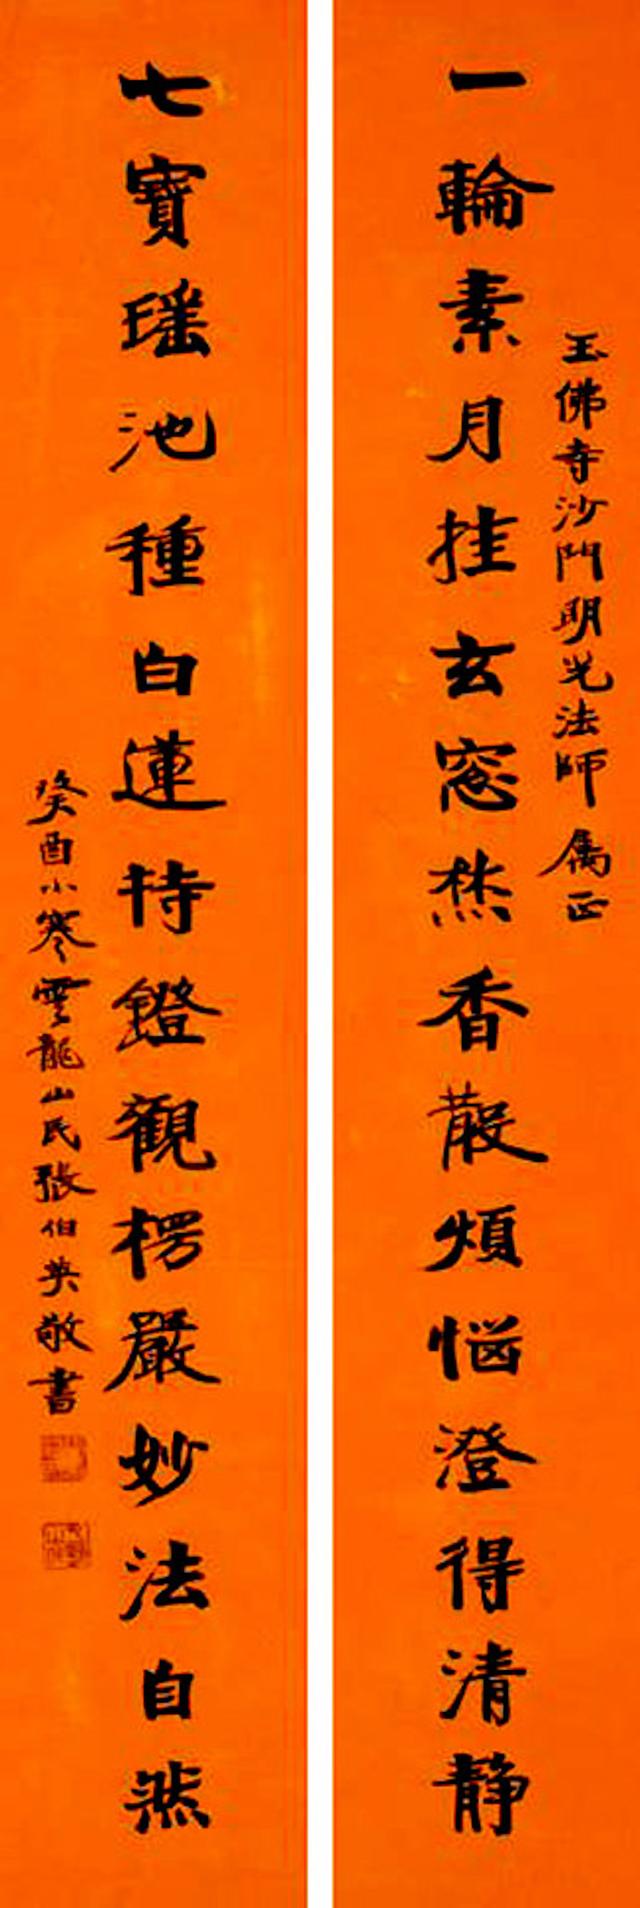 玉佛寺沙門明光法師屬正
一輪素月挂玄窓焚香散煩惱澄得清静
七寶瑶池種白蓮持鐙觀楞嚴妙法自然
癸酉小寒雲龍山民張伯英敬書